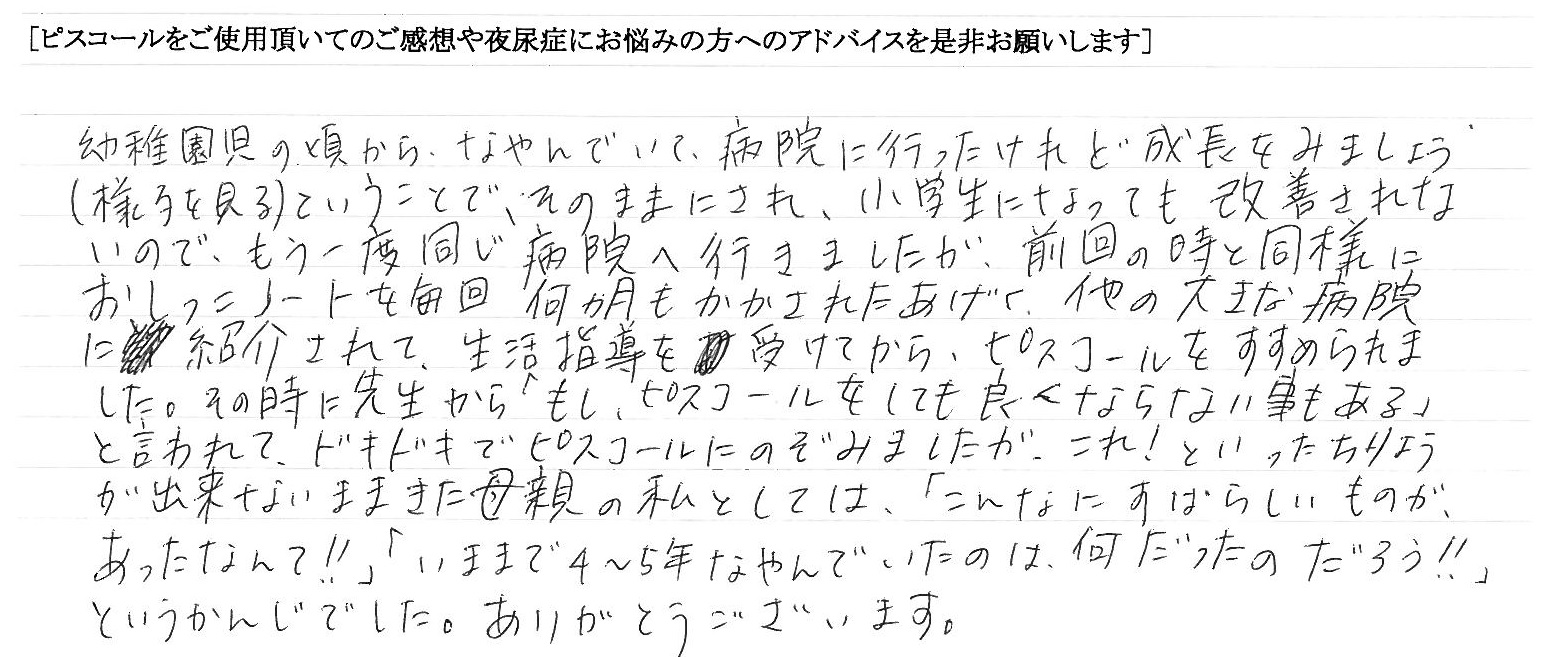 ［ピスコールをご使用頂いてのご感想や夜尿症にお悩みの方へのアドバイスを是非お願いします］
幼稚園児の頃から、なやんでいて、病院に行ったけれど成長をみましょう
(様子を見る)ということで、そのままにされ、小学生になっても改善されな
いので、もう一度同じ病院へ行きましたが、前回の時と同様に
おしっこノートを毎回何か月もかかされたあげく、他の大きな病院
に紹介されて、生活指導を受けてから、ピスコールをすすめられま
した。その時に先生から「もし、ピスコールをしても良くならない事もある」
と言われて、ドキドキでピスコールにのぞみましたが、これ！といったちりょう
が出来ないままきた母親の私としては、「こんなにすばらしいものが、
あったなんて!!」「いままで4～5年なやんでいたのは、何だったのだろう!!」
というかんじでした。ありがとうございます。